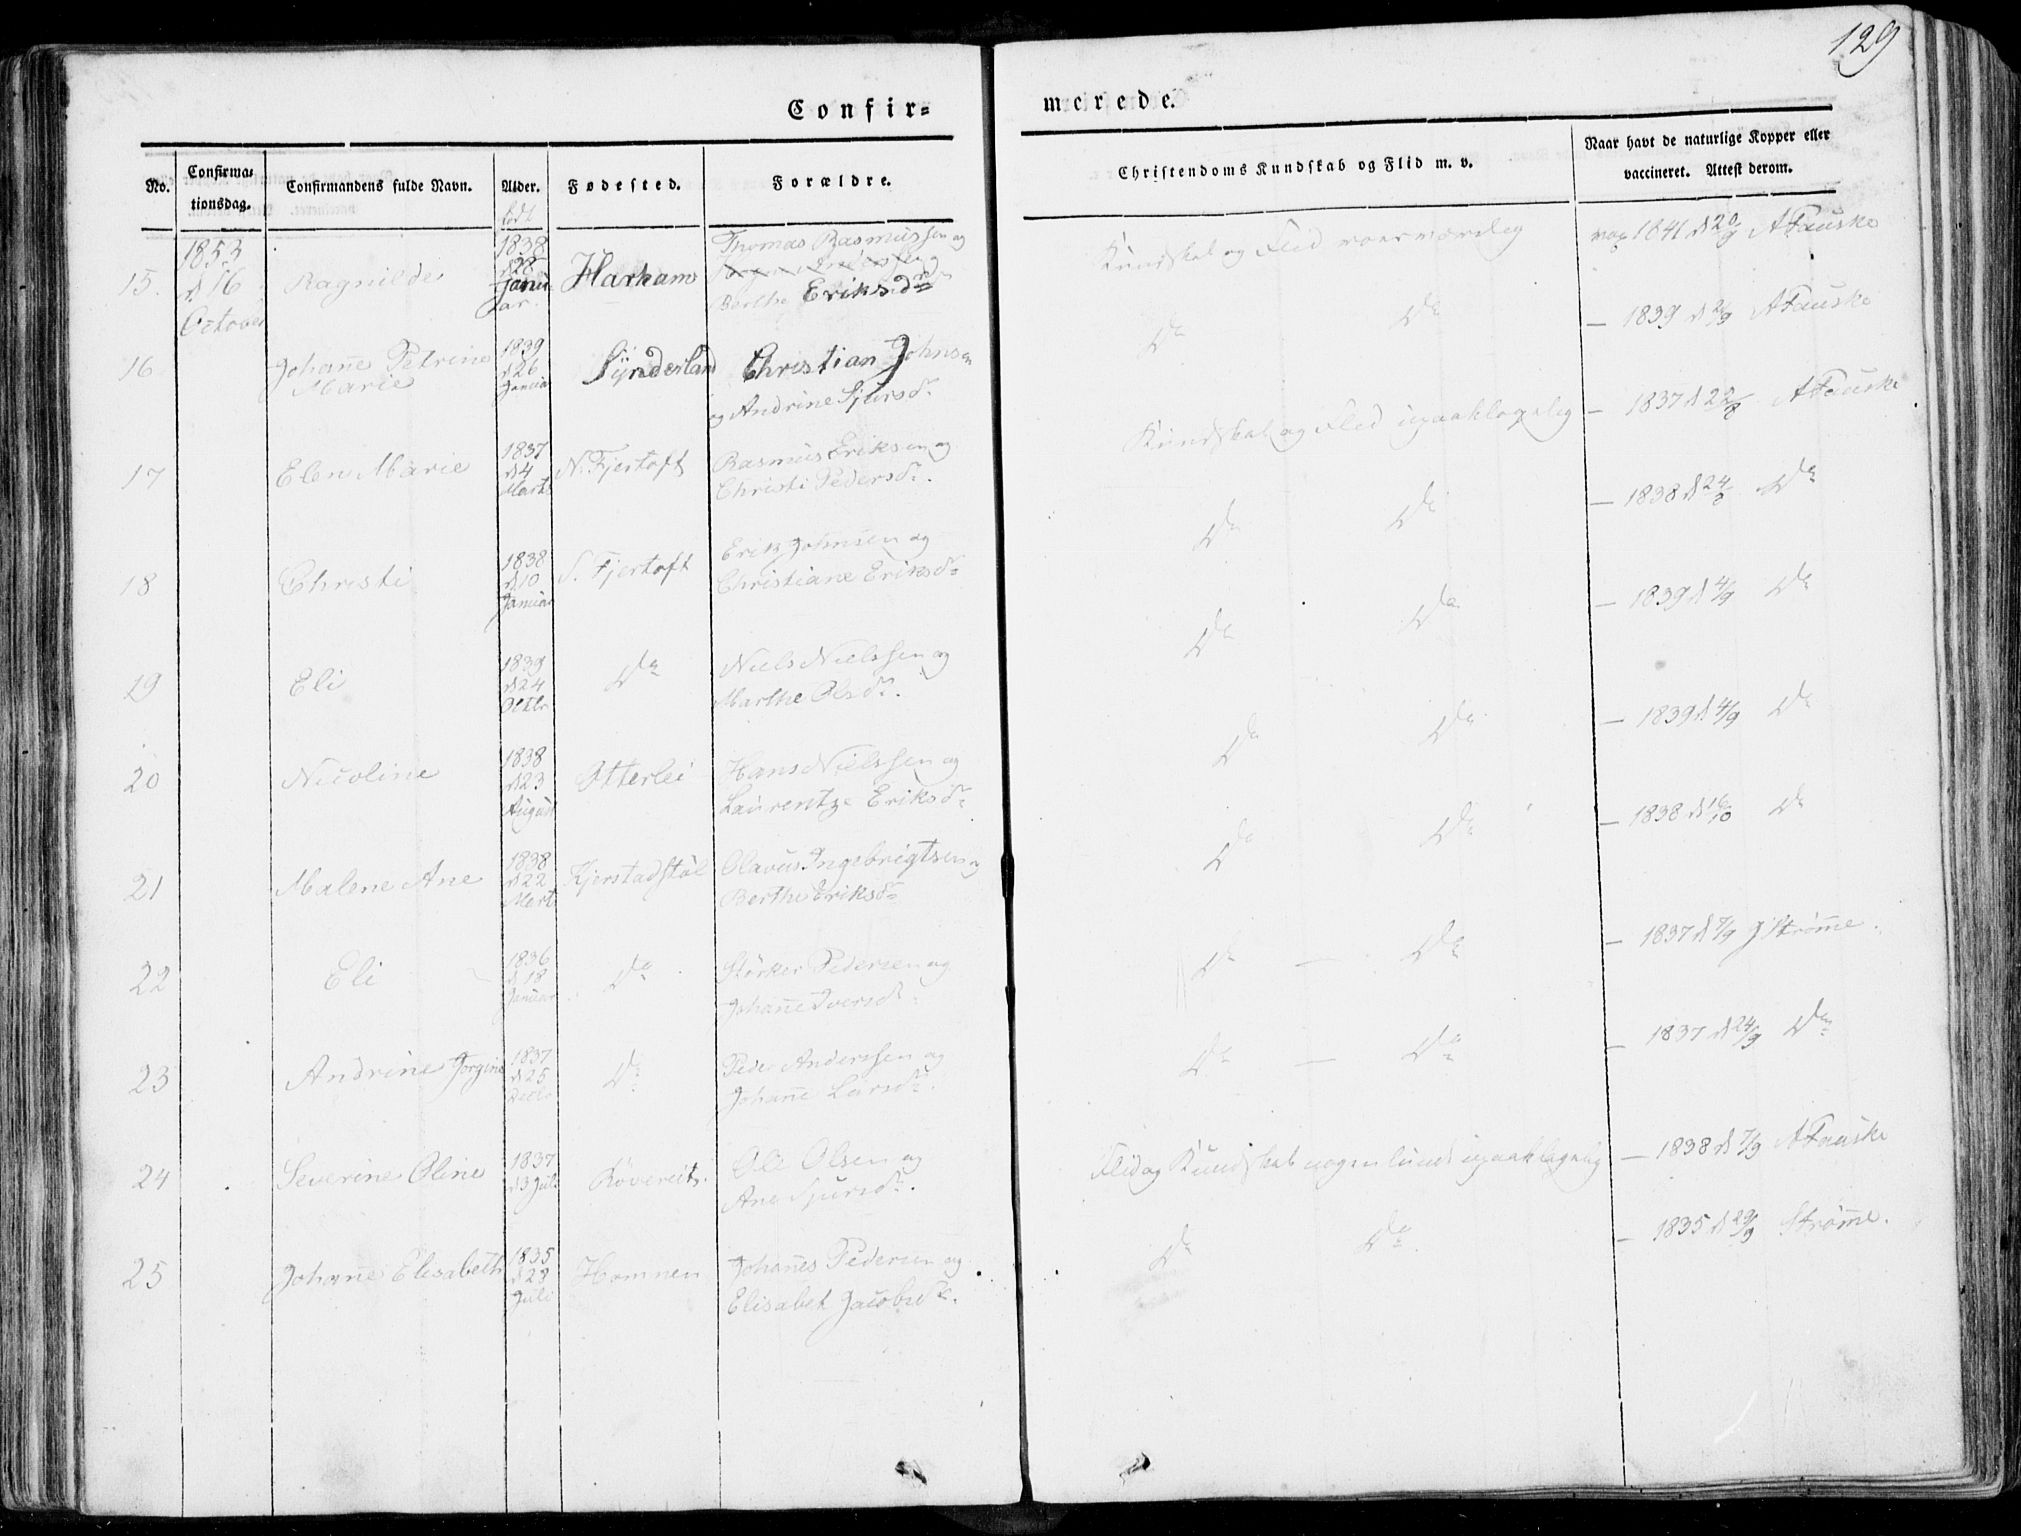 129
Confir=
merede.
No.
Confirma=
tionsdag.
Confirmandens fulde Navn.
Alder.
födt
Fødested.
Forældre.
Christendoms Kundskab og Flid m. v.
Naar havt de naturlige Kopper eller
vaccineret. Attest derom.
15.
1853
d 16
October
Ragnilde
1838
d 28
Janu
ar.
Harham
Thomas Rasmussen og
Berthe Eriksdr
Kundskab og Flid roesværdig
vax 1841 d 20/9 AFauske
16
Johan̄e Petrine
Marie
1839
d 26
Januar
Synderland
Christian Johnsen
og Andrine Sjursdr.
Do Do
— 1839 d 2/9 AFauske
17
Elen Marie
1837
d 4
Marts
N. Fjertoft
Rasmus Eriksen og
Christi Pedersdr.
Kundskab og Flid upaaklagelig
— 1837 d 22/8 AFauske
18
Christi
1838
d 10
Januar
S. Fjertoft
Erik Johnsen og
Christiane Eriksdr
Do Do
— 1838 d 24/ Do
19
Eli
1839
d 24
Octbr
Do
Niels Nielssen og
Marthe Olsdr.
Do Do
— 1839 d 4/9 Do
20
Nicoline
1838
d 23
August
Otterlei
Hans Nielssen og
Laurentze Eriksdr
Do Do
— 1839 d 4/9 Do
21
Malene Ane
1838
d 22
Mart
Kjerstadstöl
Olavus Ingebrigtsen og
Berthe Eriksdr
Do Do
— 1838 d 16/10 Do
22
Eli
1836
d 18
Januar
Do
Störker Pedersen og
Johan̄e Iversdr
Do — Do
— 1837 d 8/9 J Ström̄e.
23
Andrine Jorgine
1837
d 25
Do
Peder Anderssen og
Johan̄e Larsdr.
Do — Do
— 1837 d 24/9 Do
24
Severine Oline
1837
d 3 Juli
Rövereit.
Ole Olsen og
Ane Sjursdr.
Flid og Kundskab nogenlunde upaaklagelig
— 1838 d 7/9 AFauske
25
Johan̄e Elisabeth
1835
d 28
Juli
Hamnen
Johan̄es Pedersen og
Elisabet Jacobsdr.
Do Do.
— 1835 d 29/9 Ström̄e.